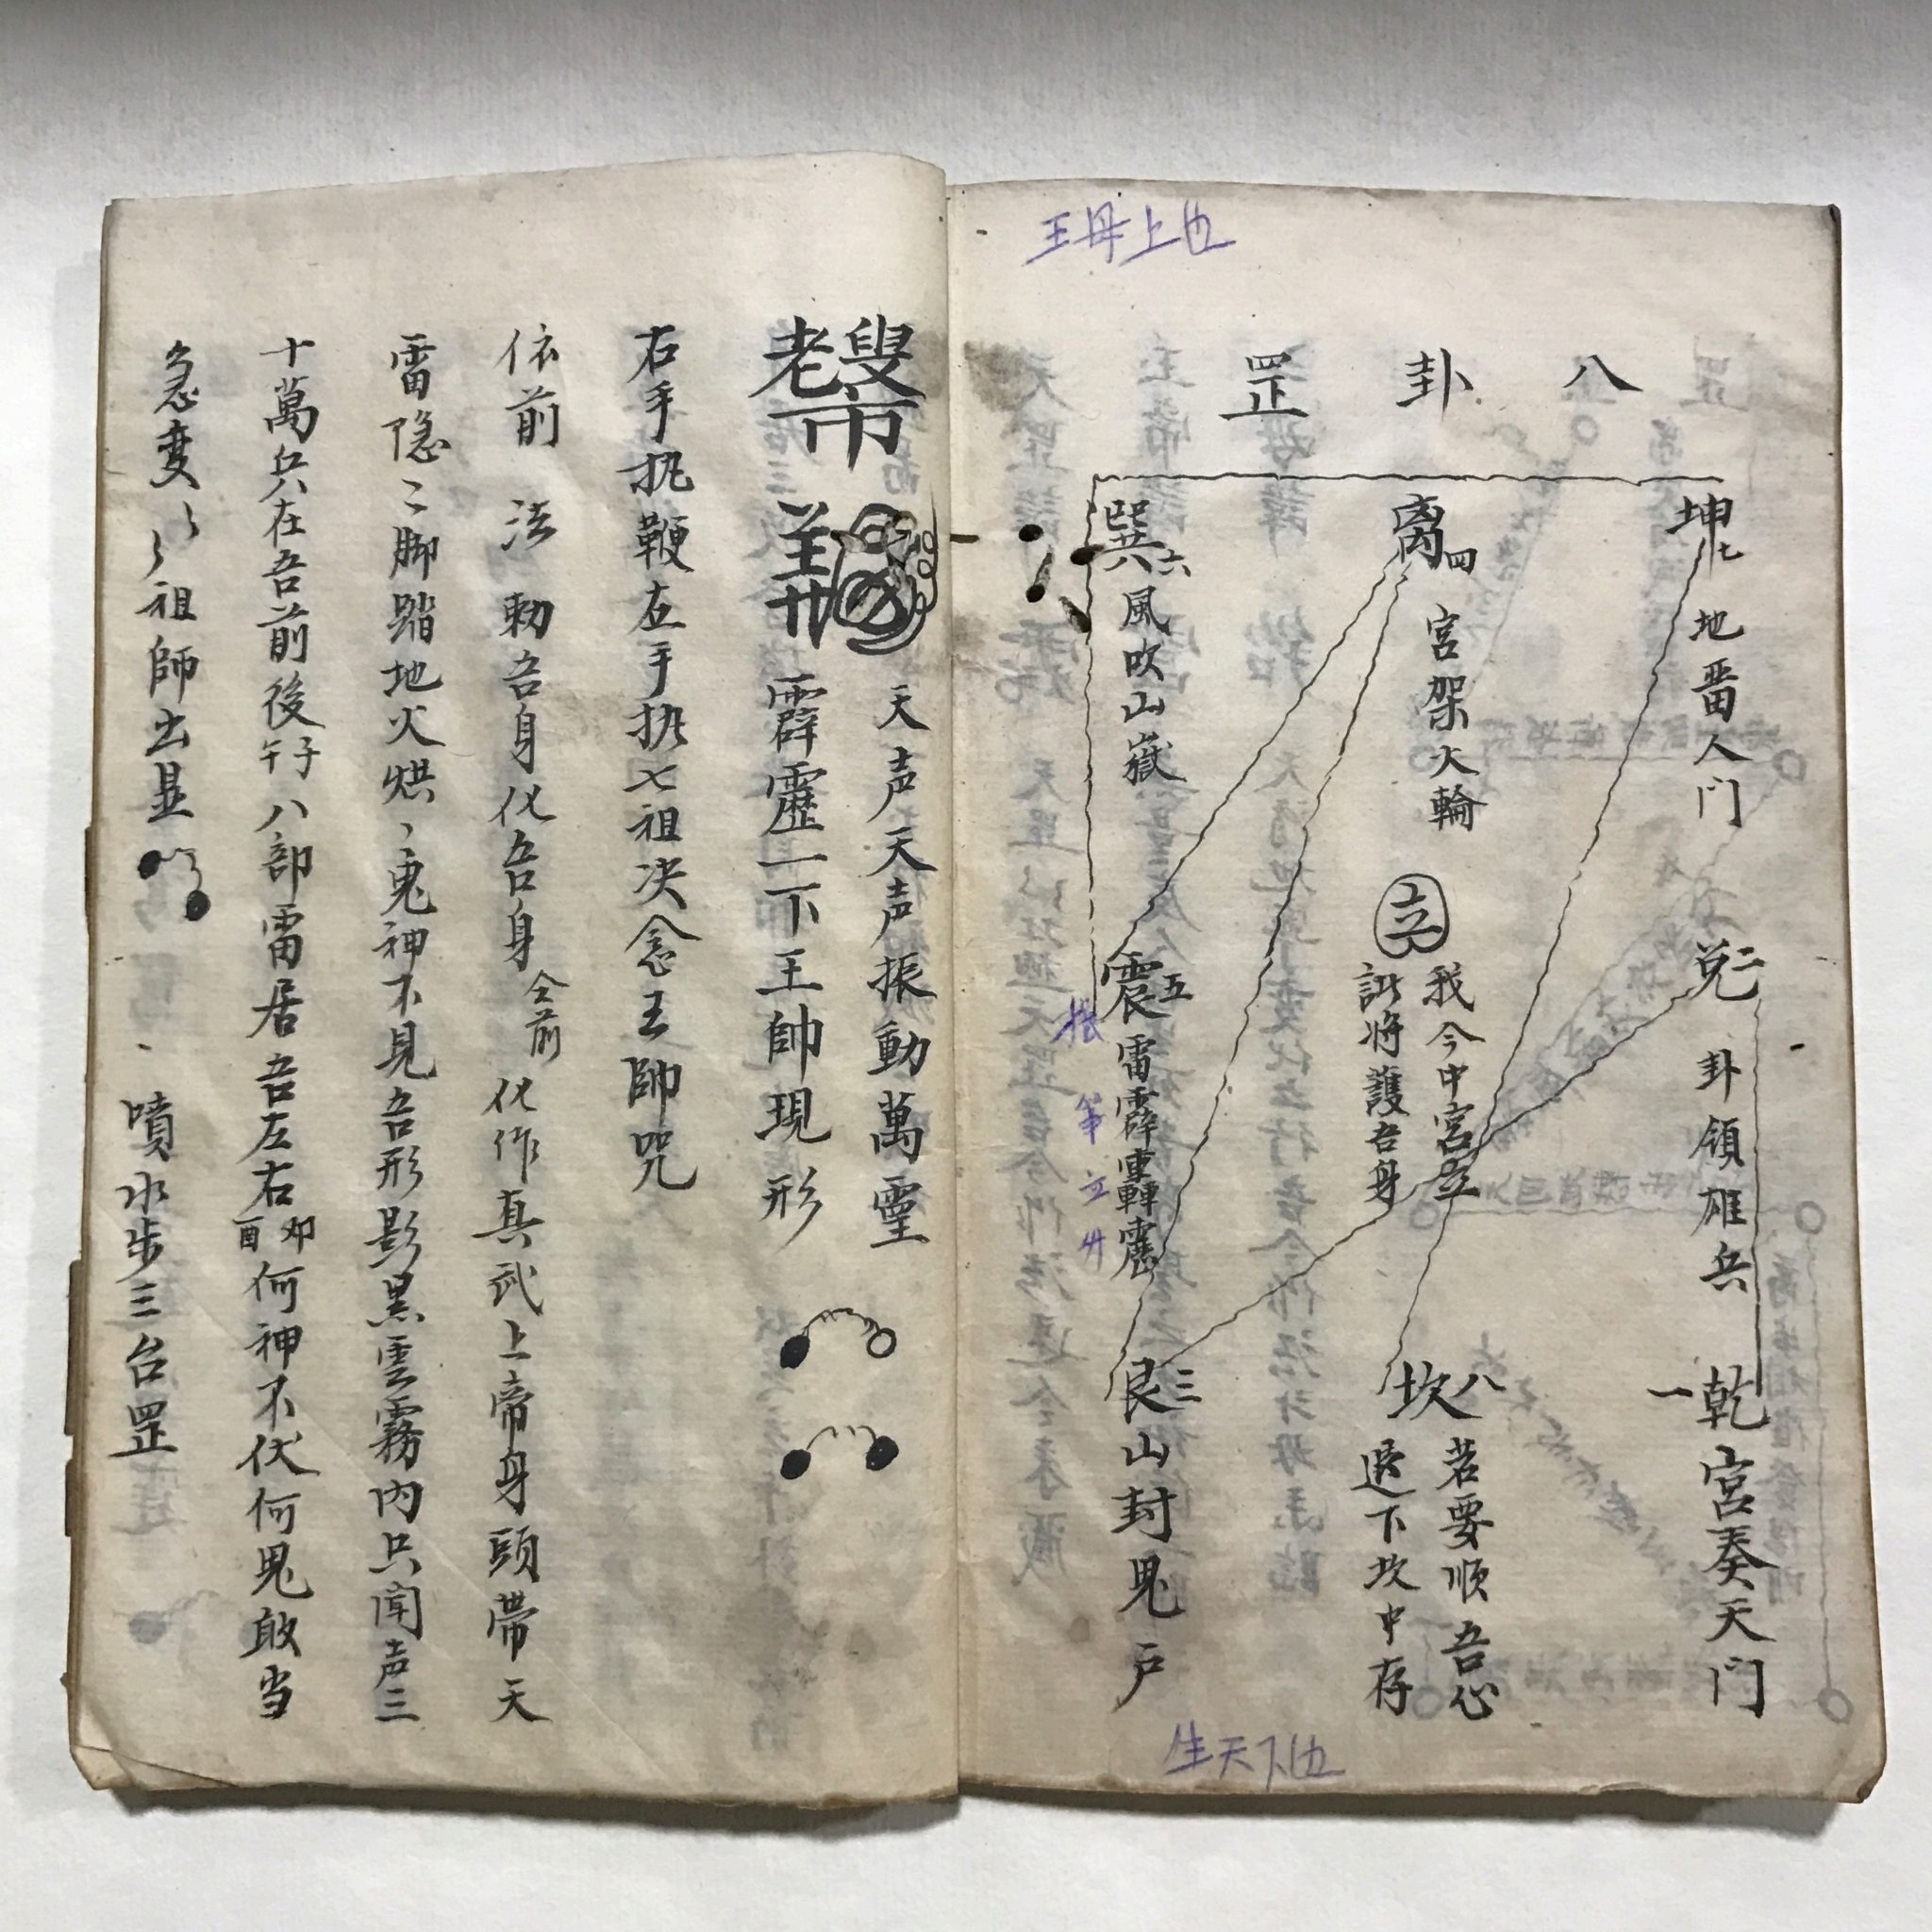 八卦罡
坤七
地番人门
兌二
卦領雄兵
一乾宮奏天门
离四
宮架火輪
我今中宮立
訨将護吾身
坎八
若要順吾心
退下坎中存
巽六
風吹山嶽
震五
雷霹轟靂
艮三
山封鬼戸
王母上也
生天下也
天声天声振動萬霊
霹靂一下王帥現形
右手执鞭左手执七祖决念王帥咒
依前 法 勅吾身化吾身仝前化作真武上帝身頭带天
雷隐二脚踏地火烘、鬼神不見吾形影黑雲霧内只闻声三
十萬兵在吾前後子午八部雷居吾左右卯酉何神不伏何鬼敢当
急变 祖師出显 噴水步三台罡